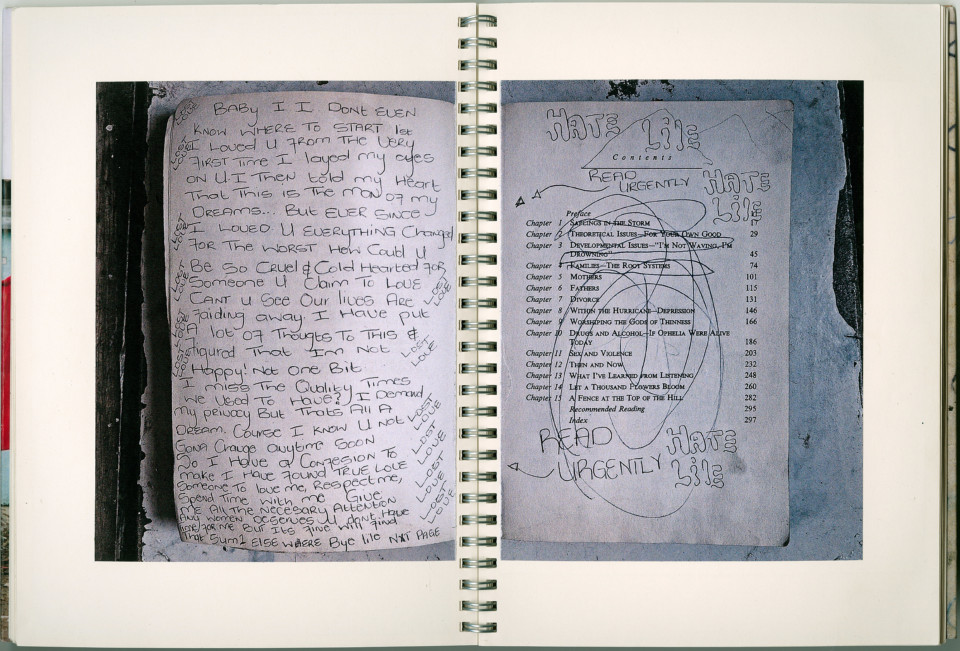 BABY I I DONT EVEN
KNOW WHERE TO START 1st
I LOVED U FROM THE VERY
FIRST TIME I layed my eyes
ON U. I THEN told my HEART
THAT THIS IS THE MAN OF my
DREAMS... BUT EVER SINCE
I LOVED U EVERYTHING Changed
FOR THE WORST HOW Could U
BE SO CRUEL & Cold HEARTED FOR
SOMEONE U CLAIM TO LOVE
CANT U SEE OUR lIVES ARE
FAIDING AWAY. I HAVE put
A lOT OF THOUGTS TO THIS &
FIGURED THAT Im NOT
Happy! NOT ONE BIT.
I MISS THE QUAlITY TIMES
WE USED TO HAVE? I DEMAND
my privacy BUT THATS All A
DREAM. COURSE I KNOW U NOT
GONA CHANGE ANYTIME SOON
SO I HAVE A CONFESION TO
MAKE I HAVE FOUND TRUE LOVE
SOMEONE TO love ME, RESPECT me,
SPEND TIME WITH ME GIVE
ME All THE NECESARY ATTENTION
ANY WOMEN DESERVES U DONT HAVE
TIME FOR ME BUT ITS FINE WILL FIND
THAT SUM1 ELSE WHERE BYE lilE NXT PAGE
LOST LOVE
LOST LOVE
LOST LOVE
LOST LOVE
LOST LOVE
LOST LOVE
LOST LOVE
LOST LOVE
LOST LOVE
LOST LOVE
LOST LOVE
LOST LOVE
HATE LilE
Contents
READ URGENTLY
HATE
LilE
Preface
Chapter 1 SAPLINGS IN THE STORM 17
Chapter 2 THEORETICAL ISSUES—FOR YOUR OWN GOOD 29
Chapter 3 DEVELOPMENTAL ISSUES—"I'M NOT WAVING, I'M
DROWNING" 45
Chapter 4 FAMILIES—THE ROOT SYSTEMS 74
Chapter 5 MOTHERS 101
Chapter 6 FATHERS 115
Chapter 7 DIVORCE 131
Chapter 8 WITHIN THE HURRICANE—DEPRESSION 146
Chapter 9 WORSHIPING THE GODS OF THINNESS 166
Chapter 10 DRUGS AND ALCOHOL—IF OPHELIA WERE ALIVE
TODAY 186
Chapter 11 SEX AND VIOLENCE 203
Chapter 12 THEN AND NOW 232
Chapter 13 WHAT I'VE LEARNED FROM LISTENING 248
Chapter 14 LET A THOUSAND FLOWERS BLOOM 260
Chapter 15 A FENCE AT THE TOP OF THE HILL 282
Recommended Reading 295
Index 297
READ
URGENTLY
HATE
LilE